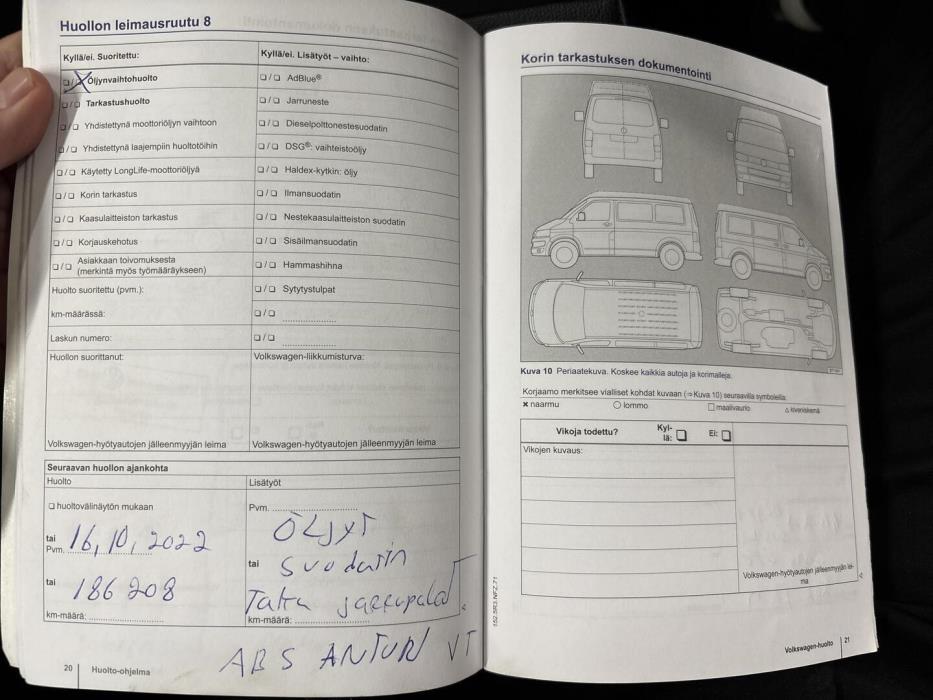 Huollon leimausruutu 8
Kyllä/ei. Suoritettu:
Kyllä/ei. Lisätyöt – vaihto:
❑/❑ Öljynvaihtohuolto
❑/❑ AdBlue®
❑/❑ Tarkastushuolto
❑/❑ Jarruneste
❑/❑ Yhdistettynä moottoriöljyn vaihtoon
❑/❑ Dieselpolttonestesuodatin
❑/❑ Yhdistettynä laajempiin huoltotöihin
❑/❑ DSG®: vaihteistoöljy
❑/❑ Käytetty LongLife-moottoriöljyä
❑/❑ Haldex-kytkin: öljy
❑/❑ Korin tarkastus
❑/❑ Ilmansuodatin
❑/❑ Kaasulaitteiston tarkastus
❑/❑ Nestekaasulaitteiston suodatin
❑/❑ Korjauskehotus
❑/❑ Sisäilmansuodatin
❑/❑ Asiakkaan toivomuksesta
(merkintä myös työmääräykseen)
❑/❑ Hammashihna
Huolto suoritettu (pvm.):
❑/❑ Sytytystulpat
km-määrässä:
❑/❑ ....................
Laskun numero:
❑/❑ ....................
Huollon suorittanut:
Volkswagen-liikkumisturva:
Volkswagen-hyötyautojen jälleenmyyjän leima
Volkswagen-hyötyautojen jälleenmyyjän leima
Seuraavan huollon ajankohta
Huolto
Lisätyöt
❑ huoltovälinäytön mukaan
Pvm. ....................
tai
Pvm. 16,10,2022
ÖLJYT
tai suodatin
tai 186 208
Taka jarrupalat
km-määrä: ....................
km-määrä: ....................
ABS ANTURI VT
20 Huolto-ohjelma
Korin tarkastuksen dokumentointi
Kuva 10 Periaatekuva. Koskee kaikkia autoja ja korimalleja.
Korjaamo merkitsee vialliset kohdat kuvaan (⇒Kuva 10) seuraavilla symboleilla:
✖ naarmu
○ lommo
□ maalivaurio
△ kiveniskemä
Vikoja todettu?
Kyl-
lä: ❑
Ei: ❑
Vikojen kuvaus:
Volkswagen-hyötyautojen jälleenmyyjän lei-
ma
152.5R3.NFZ.71
Volkswagen-huolto 21